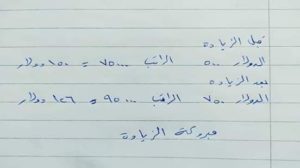 قبل الزيادة
الدولار ٥٠٠ الراتب ٧٥٠٠٠ = ١٥٠ دولار
بعد الزيادة
الدولار ٧٥٠ الراتب ٩٥٠٠٠ = ١٢٦ دولار
مبروكة الزيادة